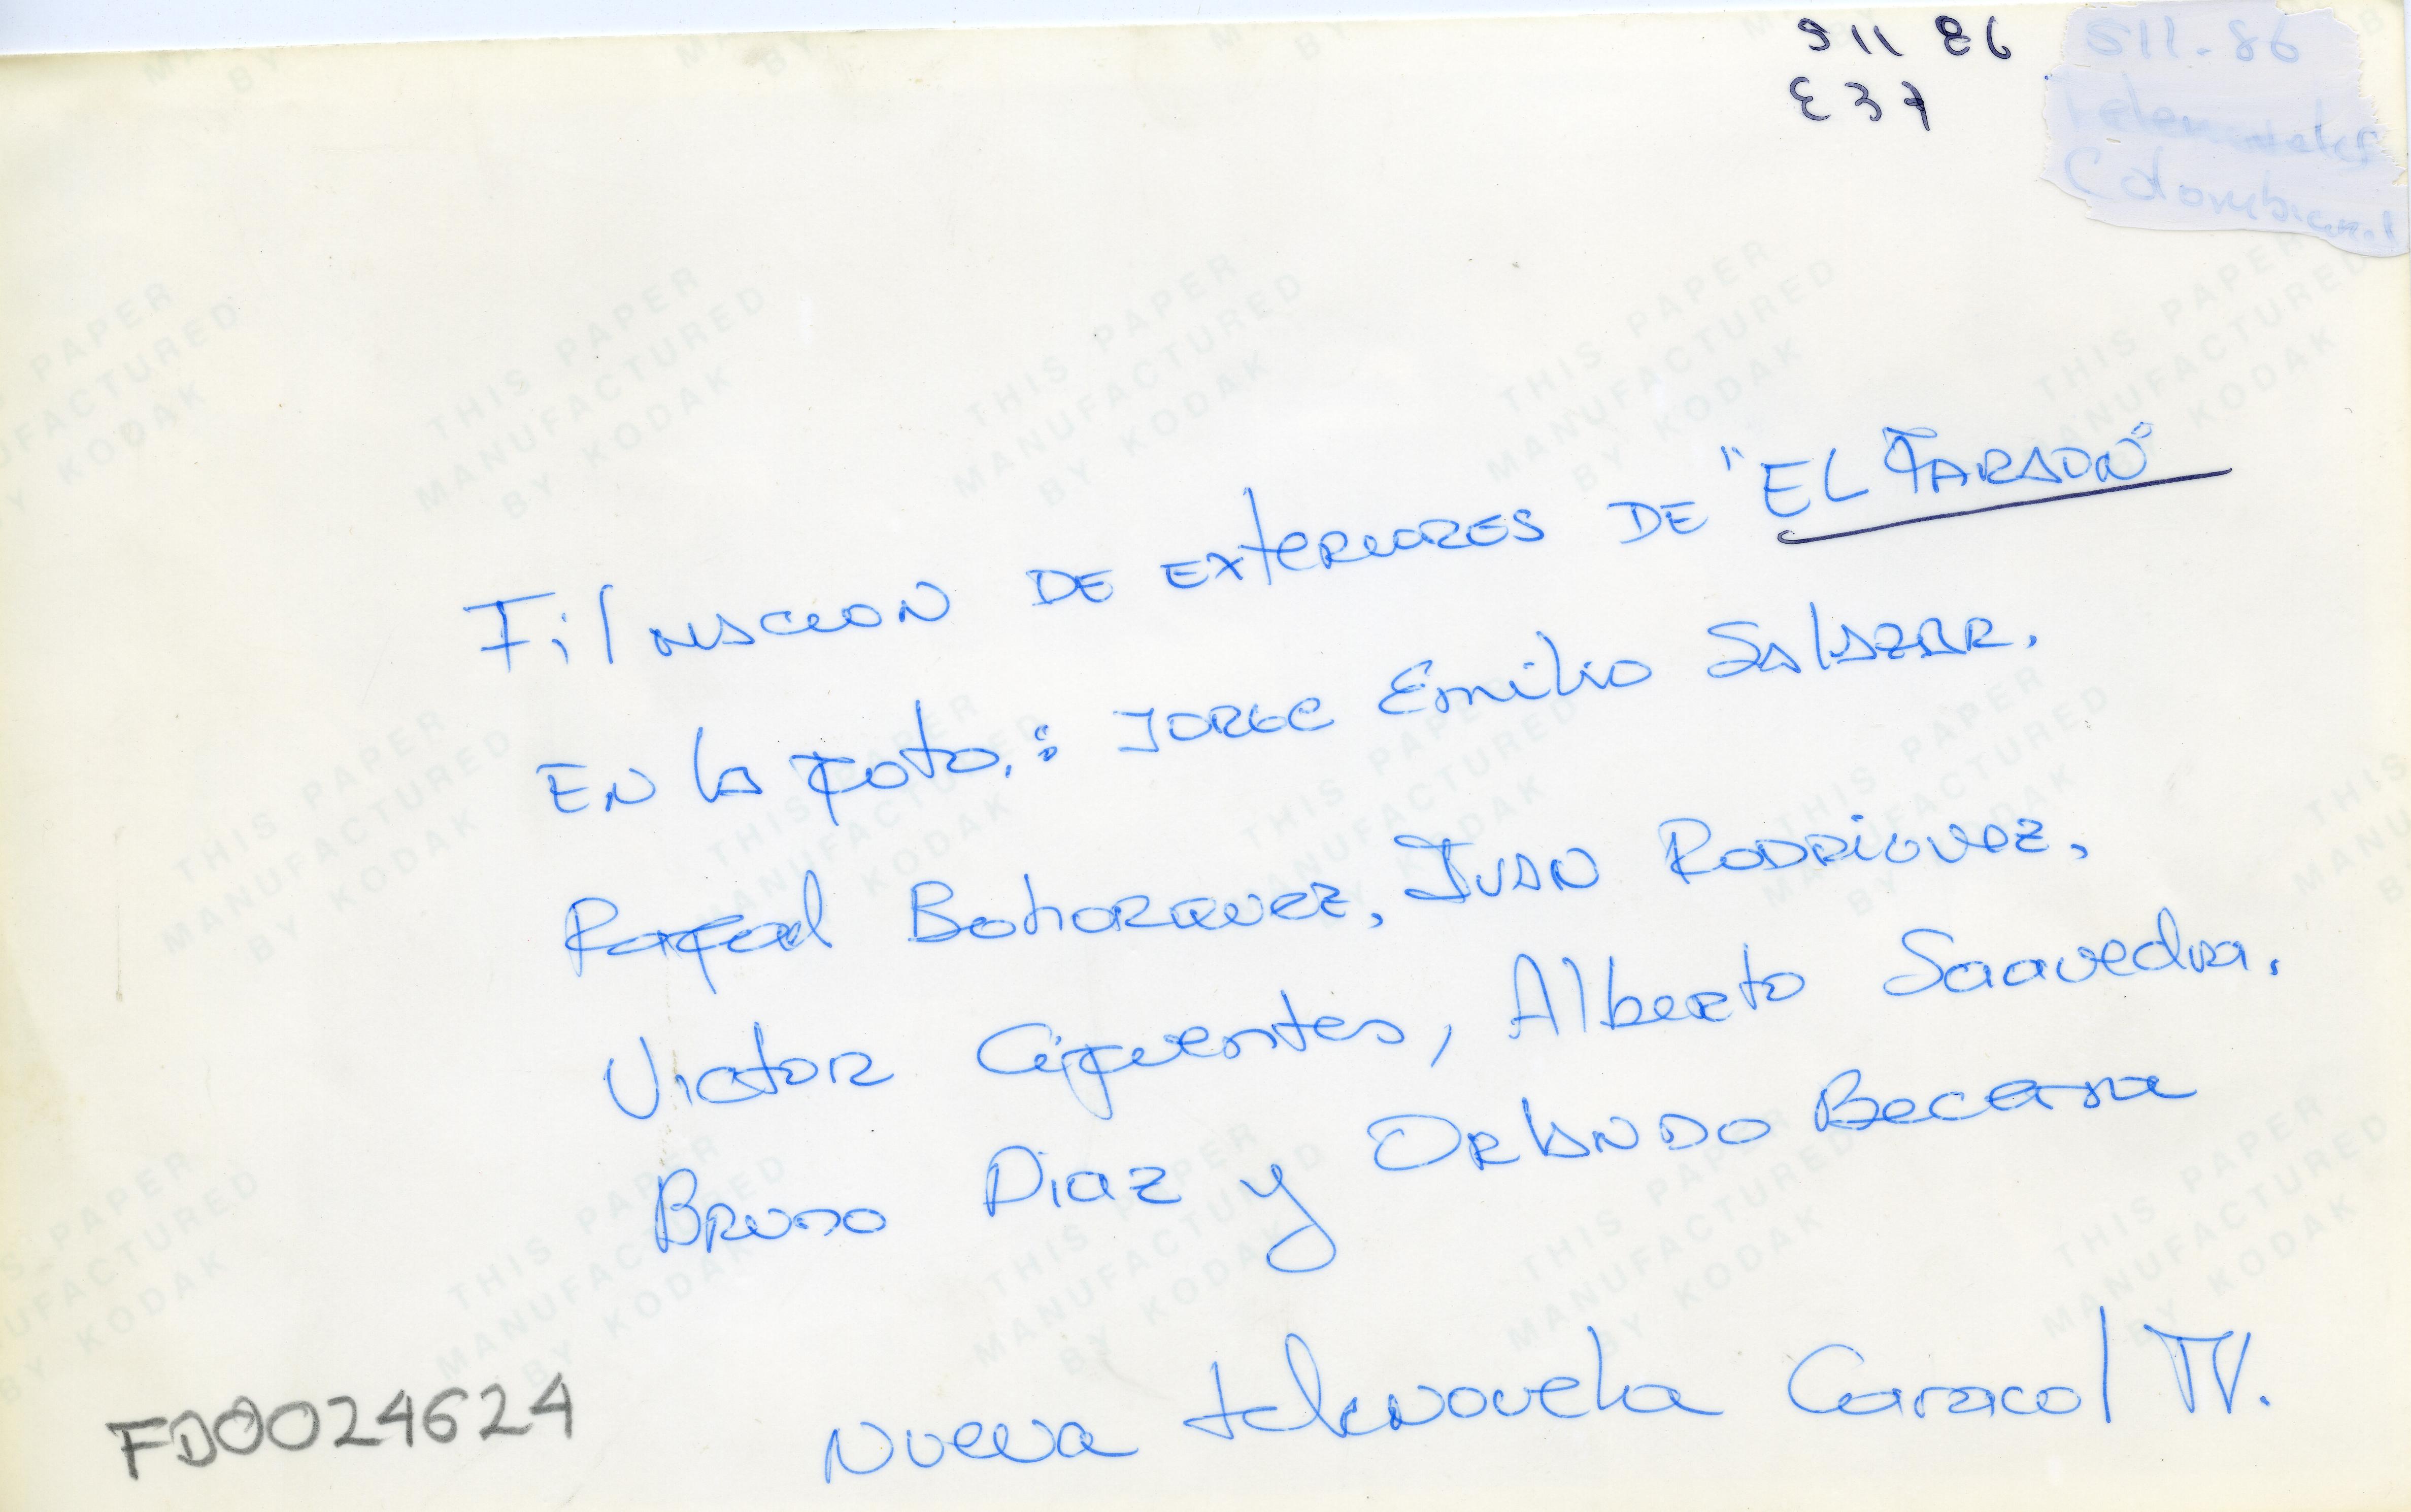 S11 86
E37
S11-86
Telenovelas
Colombianas
Filmacion DE EXteriores DE "EL FARAON"
EN la foto.: JORGE Emilio SALAZAR.
Rafael Bohorquez, JUAN RODRIGUEZ,
Victor Cifuentes, Alberto Saavedra.
Bruno Diaz y ORLANDO Becerra
Nueva telenovela Caracol TV.
FD0024624
THIS PAPER
MANUFACTURED
BY KODAK